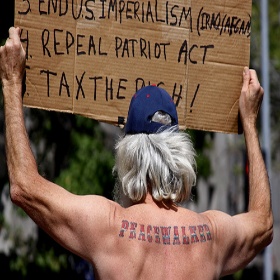 3 END U.S. IMPERIALISM (IRAQ/AFGAN
4 REPEAL PATRIOT ACT
TAX THE RICH!
PEACEWALKER